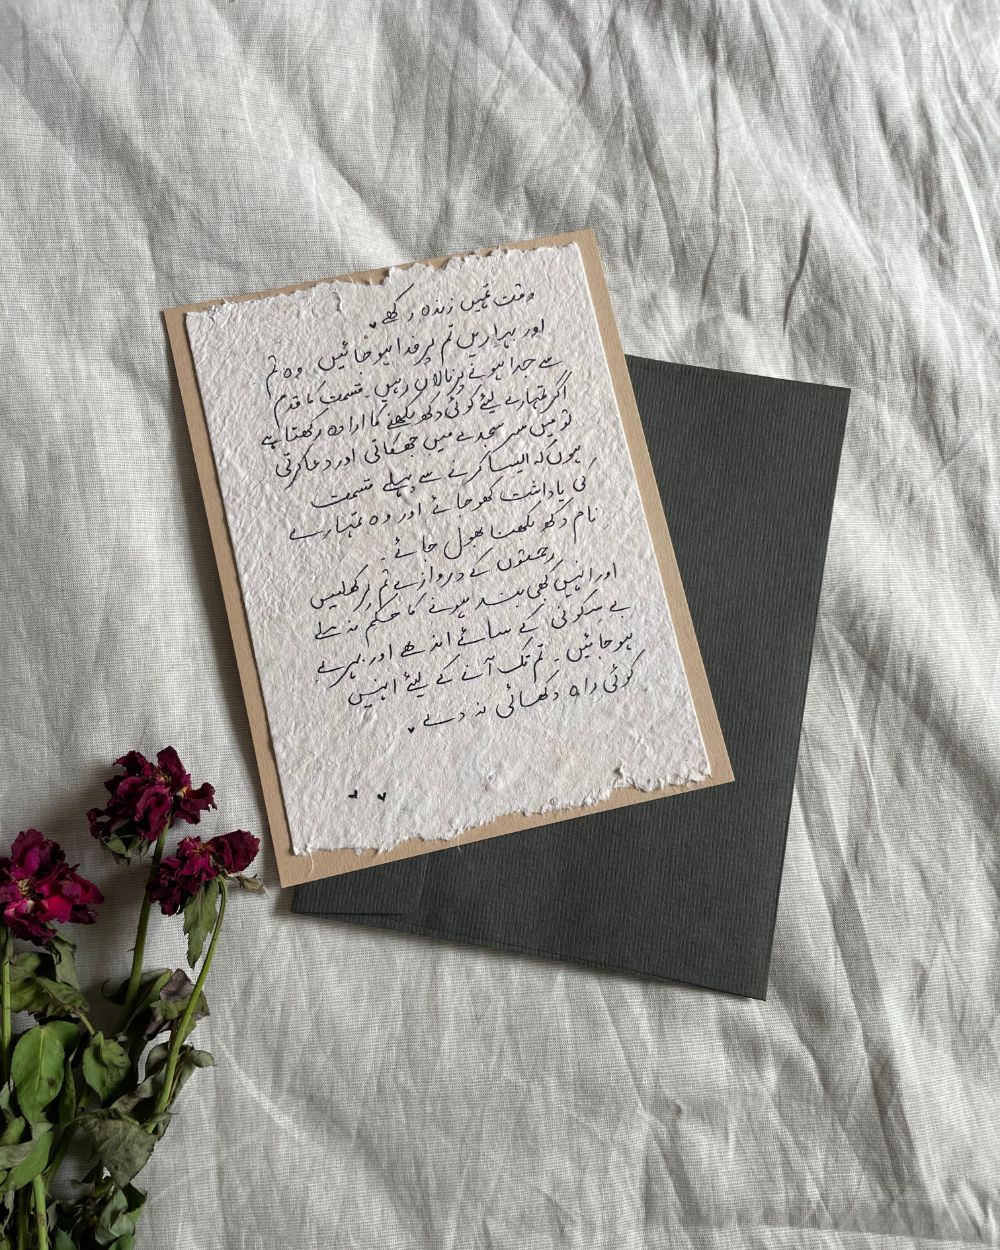 وقت تمہیں زندہ رکھے۔
اور بہاریں تم پر فدا ہو جائیں وہ تم
سے جدا ہونے پر نالاں رہیں۔ قسمت کا قلم
اگر تمہارے لیئے کوئی دکھ لکھنے کا ارادہ رکھتا ہے
تو میں سر سجدے میں جھکاتی اور دعا کرتی
ہوں کہ ایسا کرنے سے پہلے قسمت
کی یاداشت کھو جائے اور وہ تمہارے
نام دکھ لکھنا بھول جائے۔
رحمتوں کے دروازے تم پر کھلیں
اور انہیں کبھی بند ہونے کا حکم نہ ملے
بے سکونی کے سائے اندھے اور بہرے
ہو جائیں۔ تم تک آنے کے لیئے انہیں
کوئی راہ دکھائی نہ دے۔